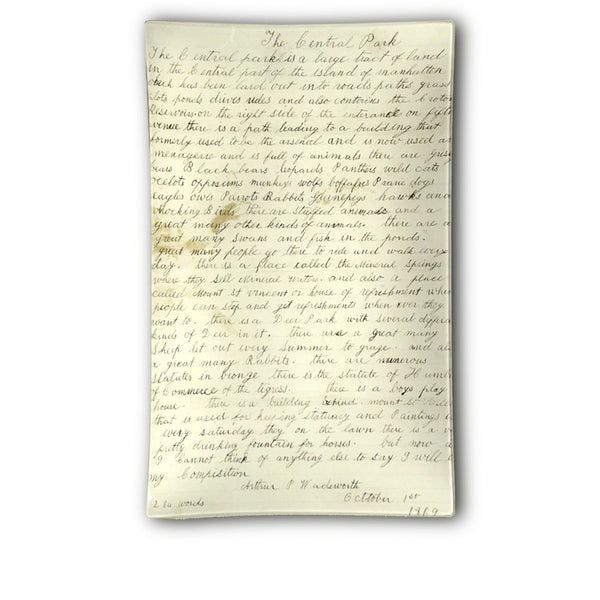 The Central Park
The Central park is a large tract of land
in the Central part of the island of manhattan
which has been laid out into roads paths grass
plots ponds drives rides and also contains the Croton
Reservoir on the right side of the enterance on fifth
avenue there is a path leading to a building that
formerly used to be the arsenal and is now used as
menagerie and is full of animals there are grisly
bears Black bears leopards Panthers wild cats
ocelots opposums munkeys wolfs boffaloes Prarie dogs
eagles owls Parrots Rabbits hawks and
Mocking Birds there are stuffed animals and a
great many other kinds of animals. there are a
great many swans and fish in the ponds.
great many people go there to ride and walk every
day. there is a place called the Mineral Springs
where they sell Mineral Water and also a place
called Mount st vincent or house of refreshment where
people can stop and get refreshments when ever they
want to. there is a Deer Park with several
kinds of Deer in it. there are a great many
sheep let out every Summer to graze. and
a great many Rabbits. there are numerous
statutes in bronze there is the statute of
of Commerce of the tigress. there is a boys play
house there is a building behind mount st
that is used for keeping statuary and Paintings
every saturday they on the lawn there is a
pretty drinking fountain for horses. but now
I cannot think of anything else to say I will
my Composition
Arthur P Wadsworth
October 1st
1869
words